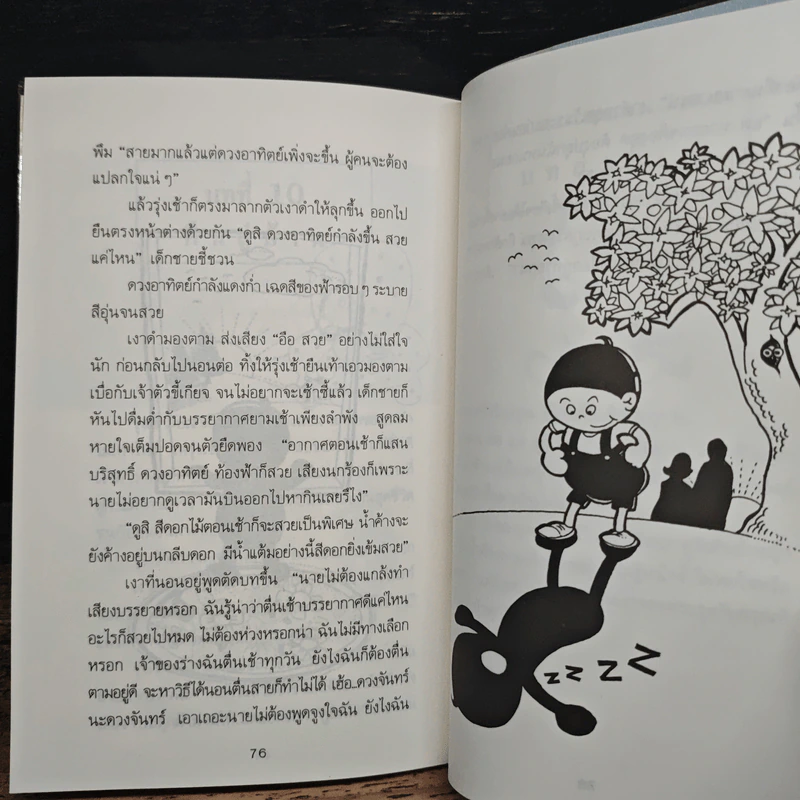 พึม “สายมากแล้วแต่ดวงอาทิตย์เพิ่งจะขึ้น ผู้คนจะต้อง
แปลกใจแน่ ๆ”
แล้วรุ่งเช้าก็ตรงมาลากตัวเงาดำให้ลุกขึ้น ออกไป
ยืนตรงหน้าต่างด้วยกัน “ดูสิ ดวงอาทิตย์กำลังขึ้น สวย
แค่ไหน” เด็กชายชี้ชวน
ดวงอาทิตย์กำลังแดงก่ำ เฉดสีของฟ้ารอบ ๆ ระบาย
สีอุ่นจนสวย
เงาดำมองตาม ส่งเสียง “อือ สวย” อย่างไม่ใส่ใจ
นัก ก่อนกลับไปนอนต่อ ทิ้งให้รุ่งเช้ายืนเท้าเอวมองตาม
เบื่อกับเจ้าตัวขี้เกียจ จนไม่อยากจะเซ้าซี้แล้ว เด็กชายก็
หันไปดื่มด่ำกับบรรยากาศยามเช้าเพียงลำพัง สูดลม
หายใจเต็มปอดจนตัวยืดพอง “อากาศตอนเช้าก็แสน
บริสุทธิ์ ดวงอาทิตย์ ท้องฟ้าก็สวย เสียงนกร้องก็เพราะ
นายไม่อยากดูเวลามันบินออกไปหากินเลยรึไง”
“ดูสิ สีดอกไม้ตอนเช้าก็จะสวยเป็นพิเศษ น้ำค้างจะ
ยังค้างอยู่บนกลีบดอก มีน้ำแต้มอย่างนี้สีดอกยิ่งเข้มสวย”
เงาที่นอนอยู่พูดตัดบทขึ้น “นายไม่ต้องแกล้งทำ
เสียงบรรยายหรอก ฉันรู้น่าว่าตื่นเช้าบรรยากาศดีแค่ไหน
อะไรก็สวยไปหมด ไม่ต้องห่วงหรอกน่า ฉันไม่มีทางเลือก
หรอก เจ้าของร่างฉันตื่นเช้าทุกวัน ยังไงฉันก็ต้องตื่น
ตามอยู่ดี จะหาวิธีได้นอนตื่นสายก็ทำไม่ได้ เฮ้อ..ดวงจันทร์
นะดวงจันทร์ เอาเถอะนายไม่ต้องพูดจูงใจฉัน ยังไงฉัน
76
z z z z